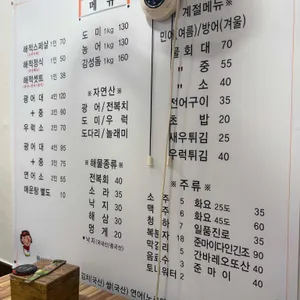 메 뉴
해적스피살 1인 70
해적정식 1인 50
해적셋트 1인 38
광 어 대 4인 120
〃 중 3인 90
우 럭 소 2인 70
광 어 대 100
〃 중 75
연 어 소 2인 55
매운탕 별도 10
도 미 1kg 130
농 어 1kg 130
감성돔 1kg 160
※자연산※
광 어/전복치
도 미/우 럭
도다리/놀래미
※해물종류※
전복회 40
소 라 35
낙 지 30
해 삼 30
멍 게 20
계절메뉴※
민어(여름)/방어(겨울)
물 회 대 70
〃 중 55
〃 소 40
전어구이 35
초 밥 20
새우튀김 25
우럭튀김 30
※주류※
소 주 5
맥 주 5
청 하 6
복분자 15
막걸리 5
음료수 2
토니워터 2
화요 25도 35
화요 45도 60
일품진로 35
준마이다인긴죠 90
간바레오또상 40
준 마 이 40
김치(국산) 쌀(국산)